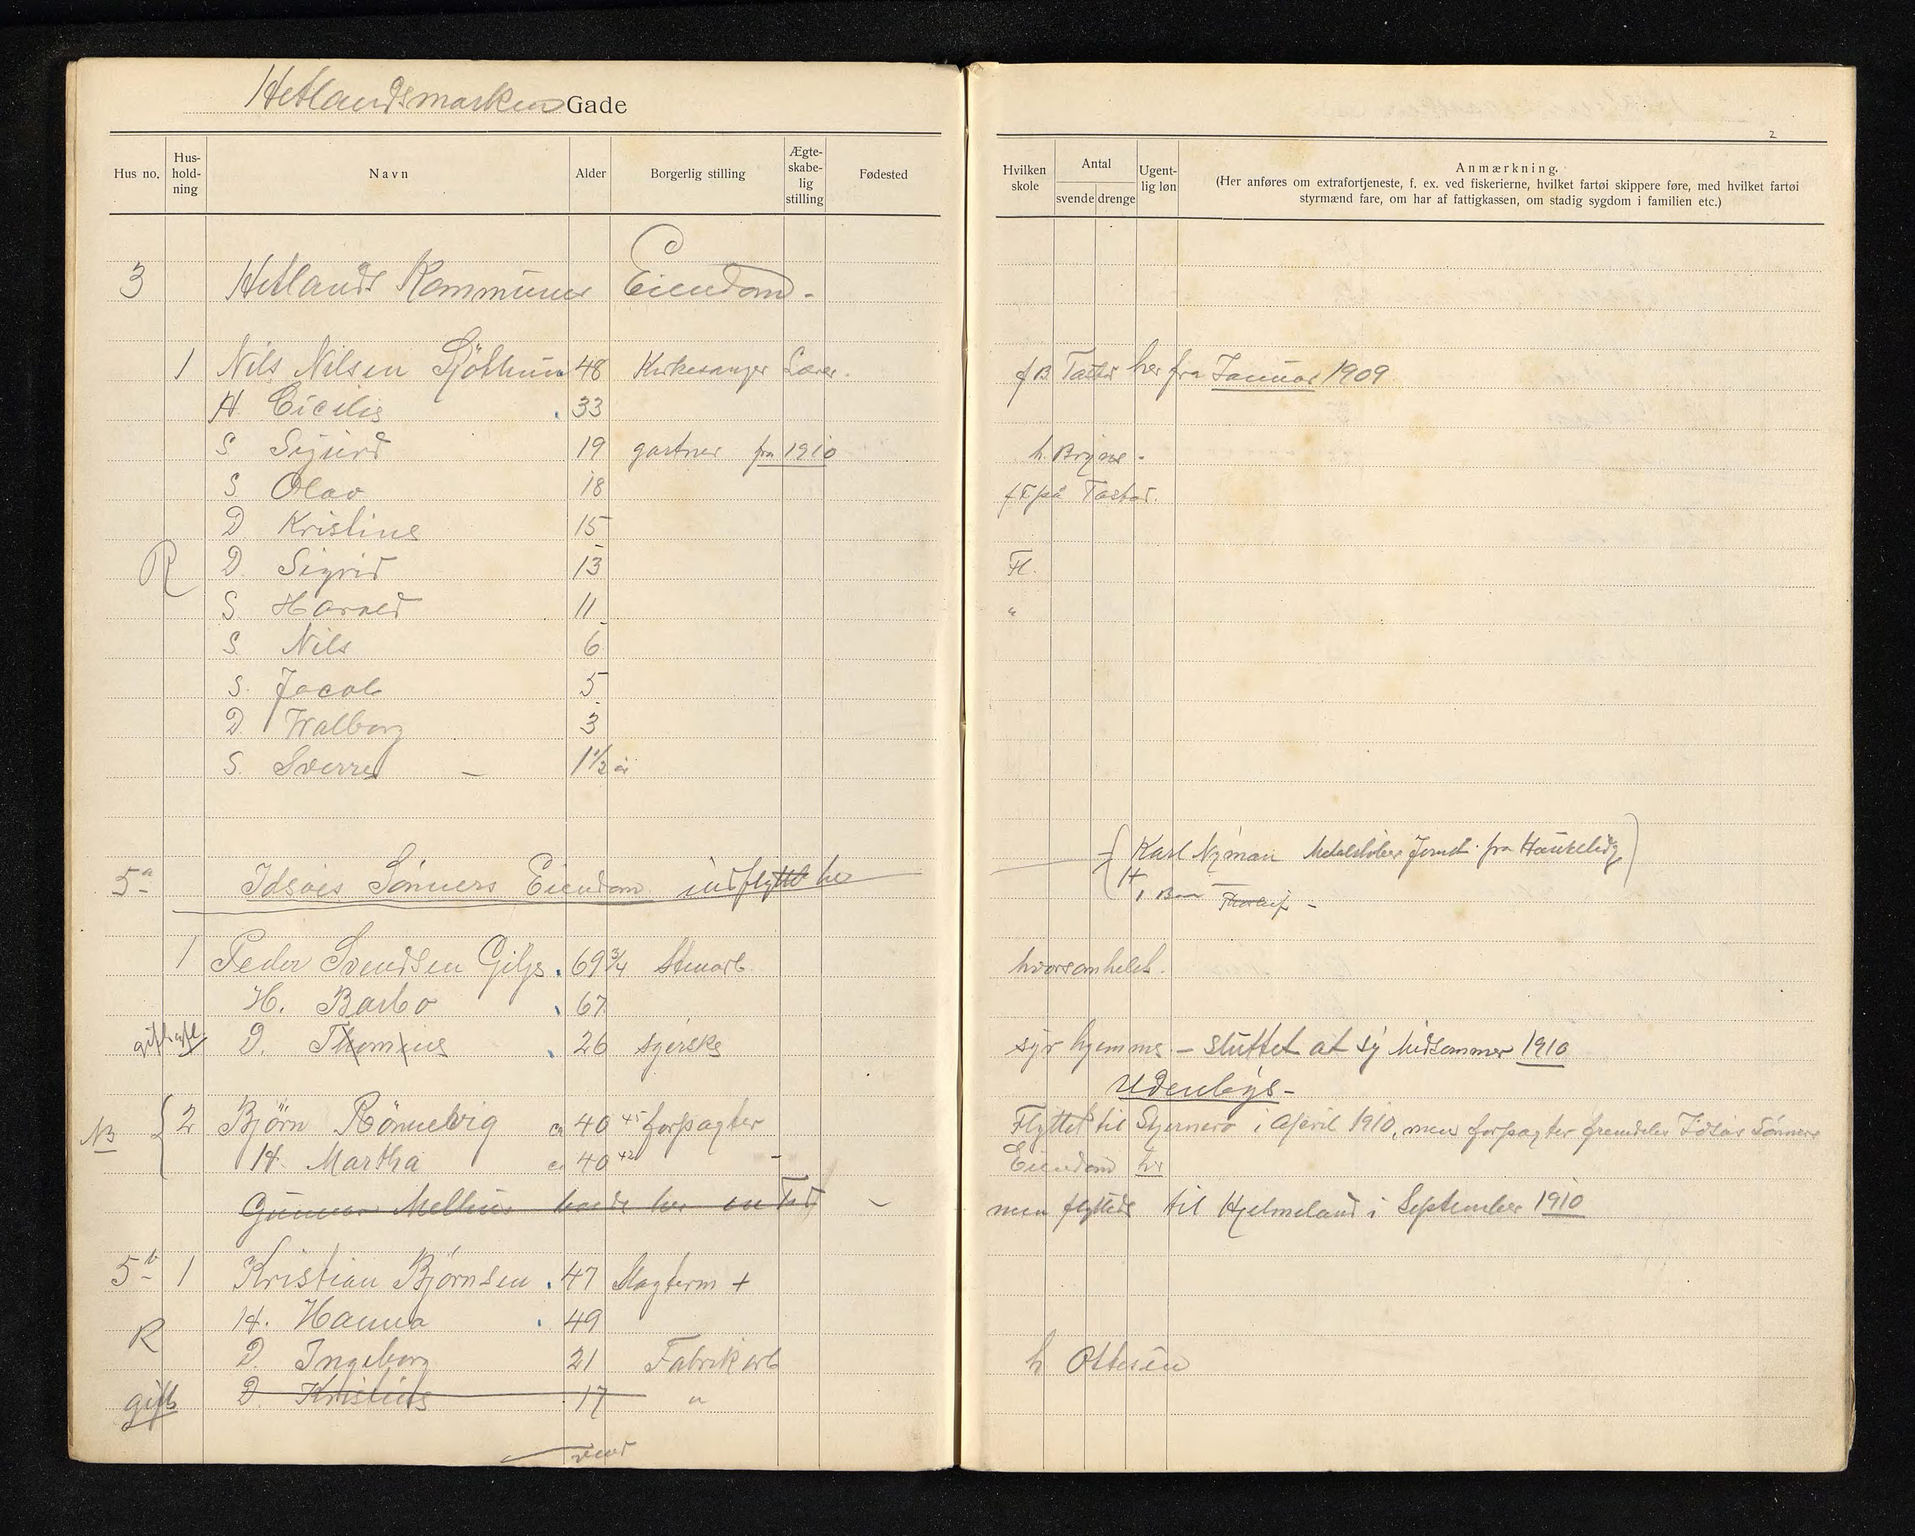 Hetlandsmarken Gade
Hus no. Hus-holdning Navn Alder Borgerlig stilling Ægte-skabe-lig stilling Fødested
3 Hetlands Kommunes Eiendom.
1 Nils Nilsen Sjöthun 48 Kirkesanger Lærer.
H. Cicilie 33
S Sigurd 19 gartner fra 1910
S Olav 18
D Kristine 15
R D. Sigrid 13
S. Harald 11
S. Nils 6
S. Jacob 5
D. Walborg 3
S. Sverre 1 1/2 år
5a Idsøes Sønners Eiendom. indflyttet her
1 Peder Svendsen Gilje 69 3/4 Stenarb.
H. Barbo 67
gift D. Thomine 26 syerske
NB 2 Bjørn Rönnevig 40 45 forpagter
H. Martha 40 42 -
Gunnar Mellius her en Tid
5b 1 Kristian Björnsen 47 Slagterm +
R H. Hanna 49
D. Ingeborg 21 Fabrikarb
gift D. Kristine 17 "
vend
2
Hvilken skole Antal svende drenge Ugent-lig løn Anmærkning.
(Her anføres om extrafortjeneste, f. ex. ved fiskerierne, hvilket fartøi skippere føre, med hvilket fartøi
styrmænd fare, om har af fattigkassen, om stadig sygdom i familien etc.)
Tasta her fra Januar 1909
h. Bryne -
på Tastad.
Fl.
"
Karl Nyman fra Haukelid
H
1 Barn
hvorsomhelst.
syr hjemme. - sluttet at sy Midsommer 1910
Udenbys -
Flyttet til Stjernerö i April 1910, men forpagter fremdeles Idsøes Sönners
Eiendom her
men flyttede til Hjelmeland i September 1910
h Ottesen